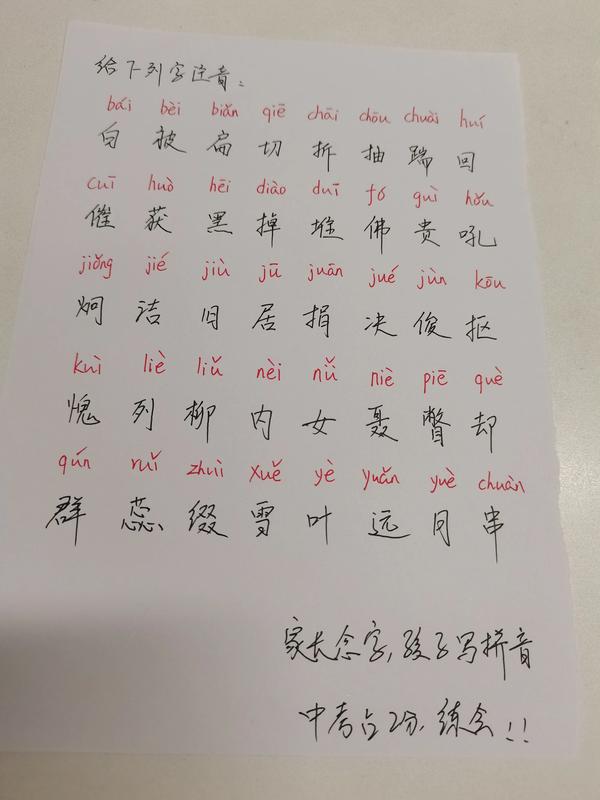 给下列字注音：
bái bèi biǎn qiē chāi chōu chuài huí
白 被 扁 切 拆 抽 踹 回
cuī huò hēi diào duī fó guì hǒu
催 获 黑 掉 堆 佛 贵 吼
jiǒng jié jiù jū juān jué jùn kōu
炯 洁 旧 居 捐 决 俊 抠
kuì liè liǔ nèi nǚ niè piē què
愧 列 柳 内 女 聂 瞥 却
qún ruǐ zhuì xuě yè yuǎn yuè chuàn
群 蕊 缀 雪 叶 远 月 串
家长念字，孩子写拼音
中考占2分，练会！！